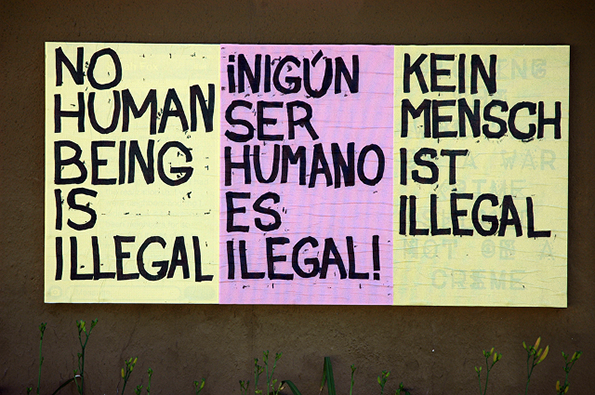 NO
HUMAN
BEING
IS
ILLEGAL
¡NIGÚN
SER
HUMANO
ES
ILEGAL!
KEIN
MENSCH
IST
ILLEGAL
A WAR
NOT
A
CRIME